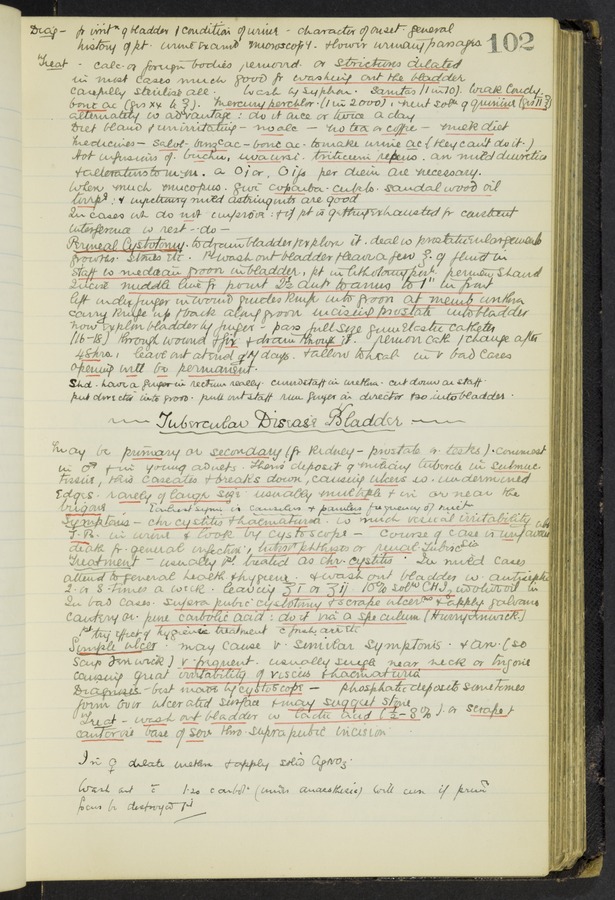 Diag - fr irrit.n of bladder / condition of urine - character of onset - general
102
history of pt. urine examd microscop.y. + lower urinary passages
Treat - calc. or foreign bodies removed. or Strictures dilated
in most cases much good fr washing out the bladder
carefully sterilise all. Wash by syphon. Sanitas (1 in 10). Weak Condy.
borac ac (grs xx to ℥). mercury perchlor. (1 in 2000). + neut soln of quinine
alternately w advantage: do it once or twice a day
Diet bland & unirritating - no alc - no tea or coffee - milk diet
Medicines - salol - benz ac - borac ac. to make urine ac (if they can't do it.)
Hot infusions of. buchu, uva ursi. triticum repens. are mild diuretics
a Oj or, Oij per diem are necessary.
When much mucopus. give copaiba. cubebs. sandal wood oil
turpt. & mild astringents are good
In cases wh do not improve: + if pt is getting exhausted fr constant
interference w rest - do -
Perineal Cystotomy. to drain bladder/explore it. deal w prostatic enlargements
growths. Stones etc. Wash out bladder & leave a few ℥. of fluid in
staff w median groove in bladder, pt in lithotomy posn.
incise middle line fr point 2" ant to anus to 1" in front
left index finger in wound guides knife into groove at memb urethra
carry knife up & back along groove incising prostate into bladder
now explore bladder by finger - pass full size gum elastic catheter
(16-18) through wound & fix & drain through it. remove cath / change after
48 hrs. leave out at end of 7 days. & allow to heal. in v bad cases
opening will be permanent.
Shd. have a finger in rectum really. curved staff in urethra. cut down on staff
put director into groove. pull out staff run finger on director & so into bladder.
Tubercular Disease Bladder
May be primary or secondary (fr kidney - prostate or testes). commonest
in ♂ & in young adults. There's deposit of miliary tubercle in submuc.
tissue, this caseates & breaks down, causing ulcers w. undermined
Edges. rarely of large size usually multiple & in or near the
trigone
Symptoms - chr cystitis & haematuria. w much vesical irritability
T.B. in urine & look by cystoscope - Course of case is unfavourable
death fr. general infection, phthisis or renal Tubercsis
Treatment - usually 1st treated as chr. cystitis. In mild cases
attend to general health & hygiene. & wash out bladder w. antiseptic
2 or 3 times a week. leaving ℥i or ℥ij 10% soln CHI3 in
In bad cases. supra pubic cystotomy & scrape ulcers & apply galvanic
cautery or. pure carbolic acid: do it via a speculum [Hurry Fenwick]
1st try effect of hygienic treatment
Simple ulcer. may cause v. similar symptoms. (so
says Fenwick) v frequent. usually single near neck or trigone
causing great irritability of viscus & haematuria
Diagnosis - best made by cystoscope - phosphatic deposits sometimes
form over ulcerated surface & may suggest stone
Treat - wash out bladder w lactic acid (½-3%). or scrape &
cauterise base of sore thro. suprapubic incision
In ♀ dilate urethra & apply solid AgNO3.
Wash out c 1:20 carbol. (under anaesthesia) will cure if prim
focus be destroyed 1st